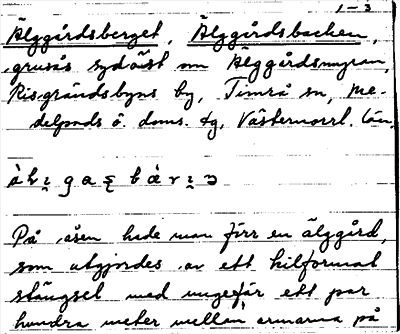 1-3
Älggårdsberget, Älggårdsbacken,
grusås sydöst om Älggårdsmyran,
Risgrändsbyns by, Timrå sn, Me-
delpads ö. doms. tg, Västernorrl. län.
På åsen hade man förr en älggård,
som utgjordes av ett kilformat
stängsel med ungefär ett par
hundra meter mellan armarna på